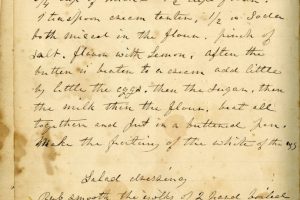 3/4 cup of
1 teaspoon cream tarter, 1/2 in Soda
both mixed in the flour. pinch of
salt. flavor with Lemon, after the
butter is beaten to a cream add little
by little the eggs. then the sugar, then
the milk then the flour, beat all
together and put in a buttered pan.
Make the frosting of the white of the egg
Salad dressing
Rub smooth the yolks of 2 hard boiled